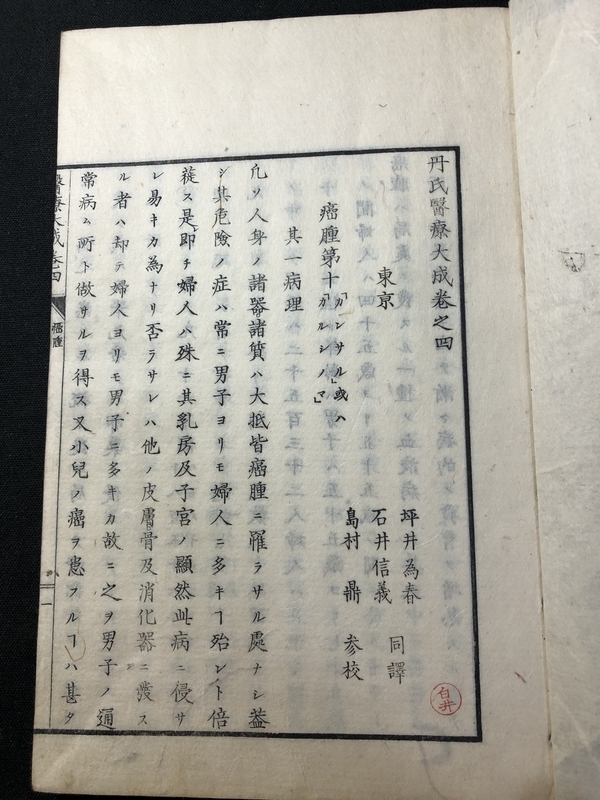 丹氏醫療大成卷之四
東京
坪井為春
同譯
石井信義
島村鼎 参校
癌腫第十 「カンサル」或ハ「カルシノマ」
其一病理
凢ソ人身ノ諸器諸質ハ大抵皆癌腫ニ罹ラサル處ナシ葢
シ其危險ノ症ハ常ニ男子ヨリモ婦人ニ多キヿ殆ント倍
蓰ス是即チ婦人ハ殊ニ其乳房及子宮ノ顯然此病ニ侵サ
レ易キカ為ナリ否ラサレハ他ノ皮膚骨及消化器ニ發ス
ル者ハ却テ婦人ヨリモ男子ニ多キカ故ニ之ヲ男子ノ通
常病ム所ト做サルヲ得ス又小兒ノ癌ヲ患フルヿハ甚タ
醫療大成卷四
癌腫
一
白井